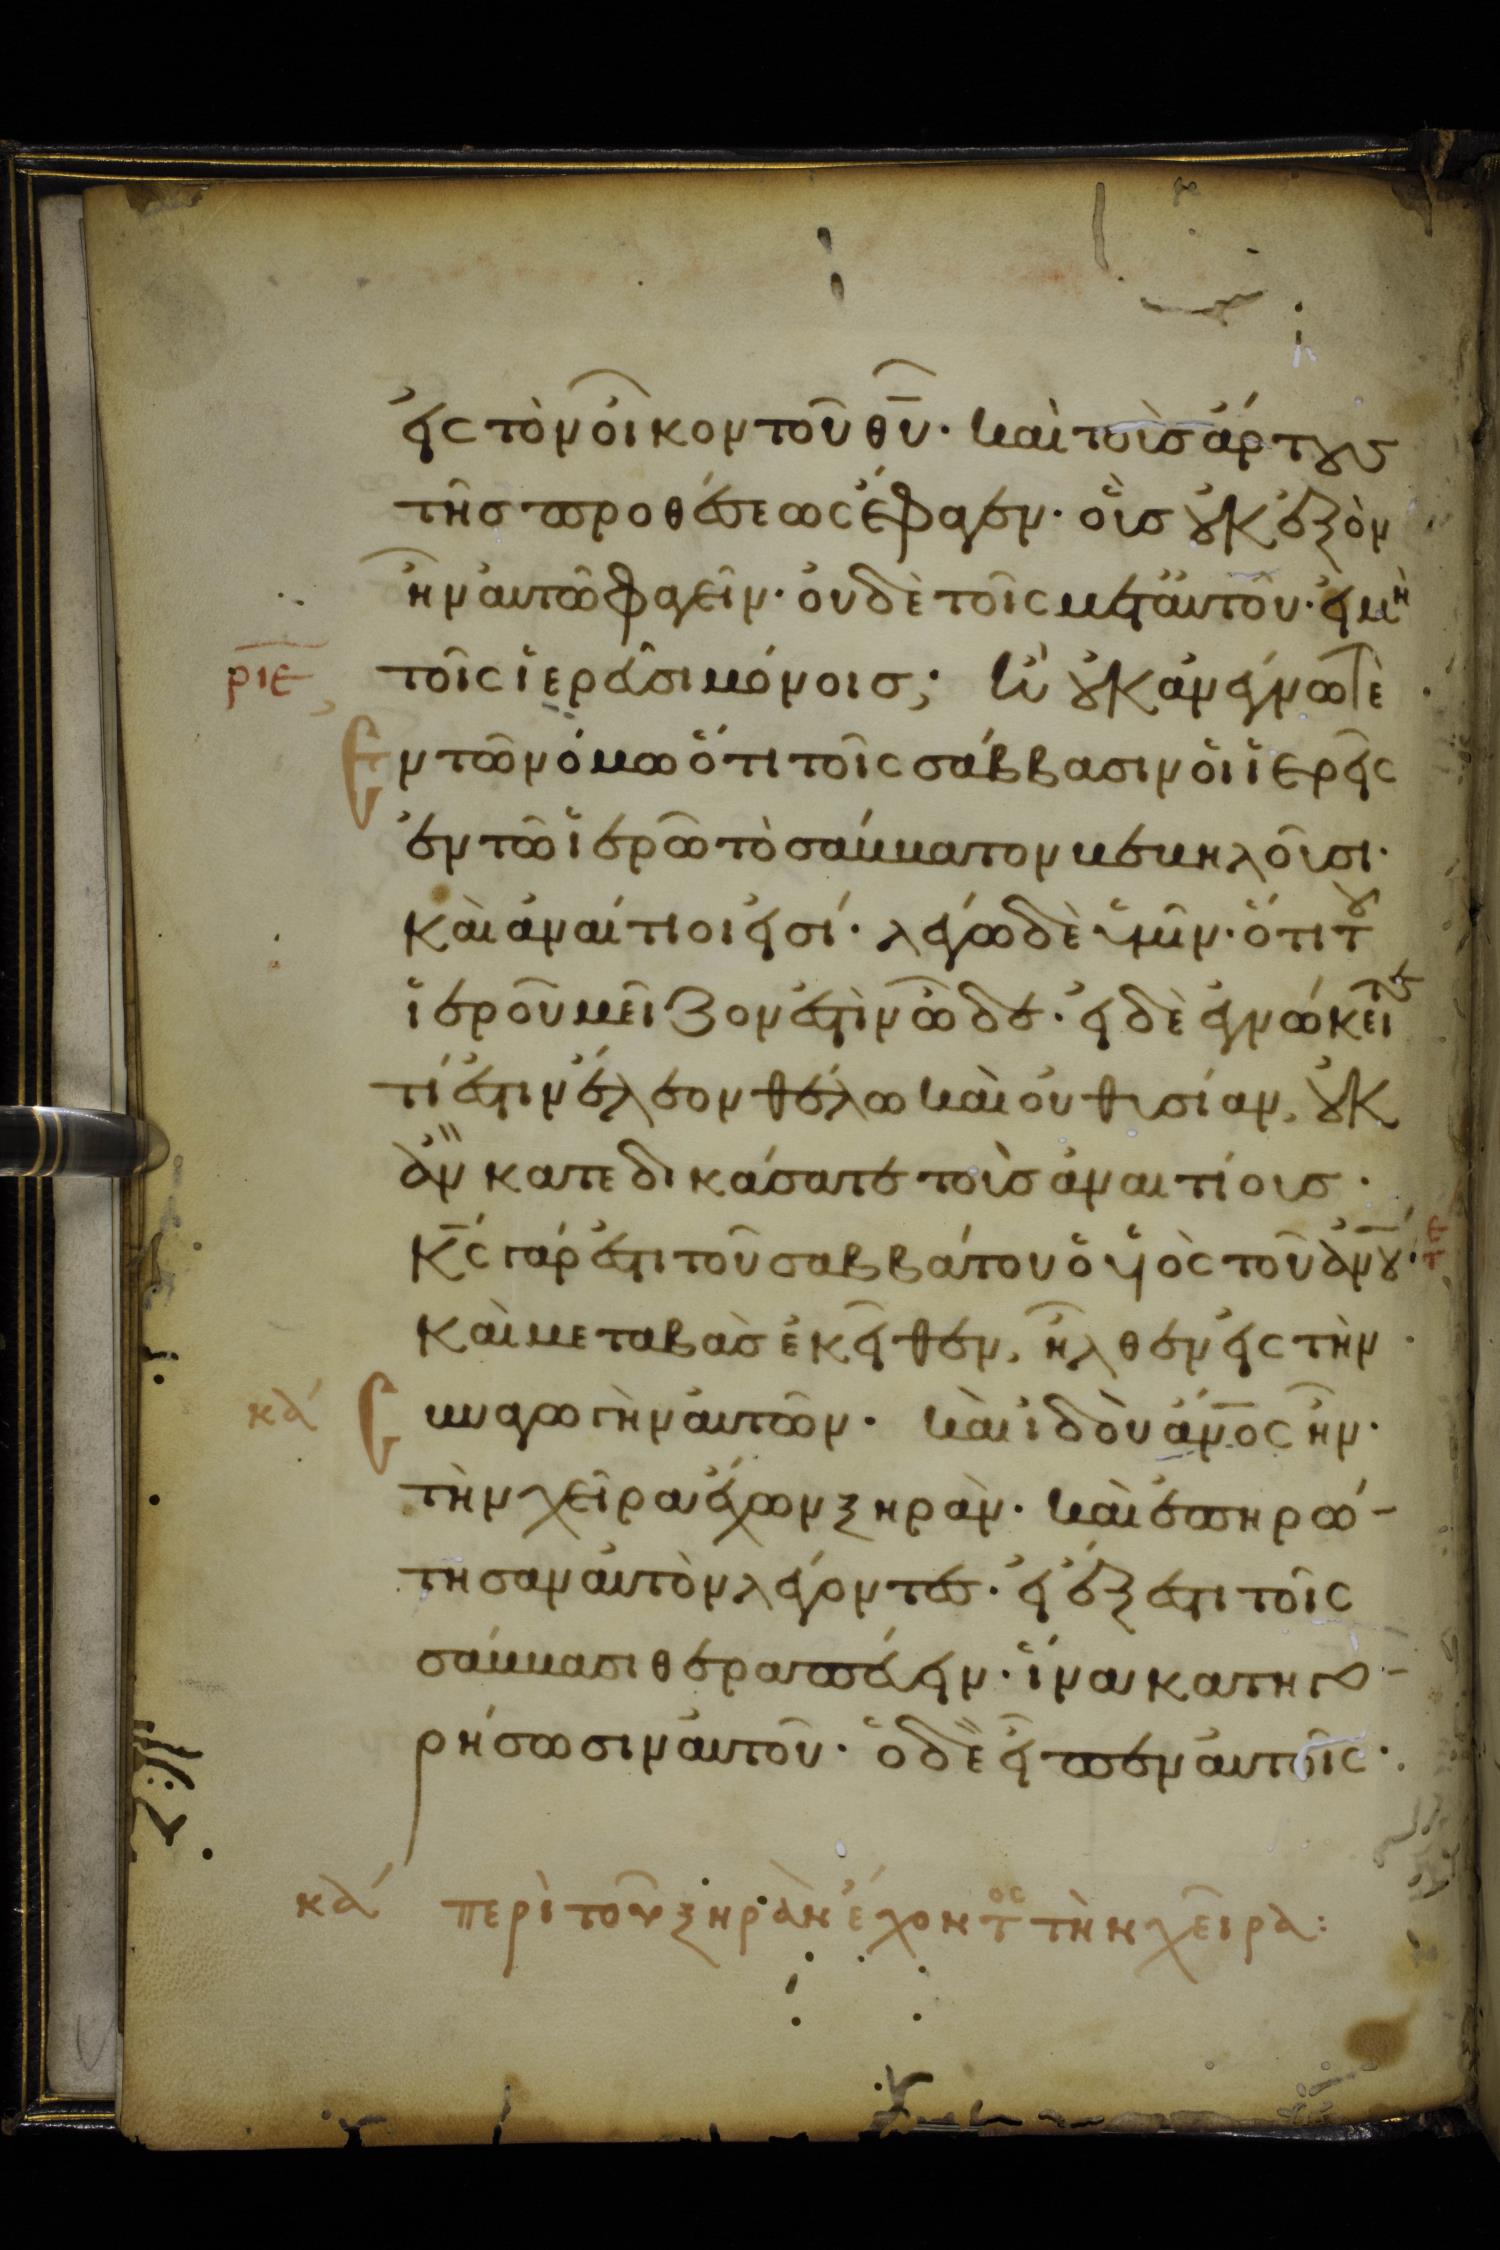 εἰς τὸν οἶκον τοῦ θ̅υ̅· καὶ τοὺς ἄρτους
τῆς προθέσεως ἔφαγεν· οἷς οὐκ ἐξὸν
ἦν αὐτῶ φαγεῖν· οὐδὲ τοῖς μετ αὐτοῦ· εἰ μὴ
ρ̅ι̅ε̅ τοῖς ἱερεῦσι μόνοις; ἢ οὐκ ἀνέγνωτε
Ἐν τῶ νόμω ὅτι τοῖς σάββασιν οἱ ἱερεῖς
ἐν τῶ ἱερῶ τὸ σάββατον βεβηλοῦσι·
καὶ ἀναίτιοι εἰσί· λέγω δὲ ὑμῖν· ὅτι τοῦ
ἱεροῦ μεῖζον ἐστὶν ὧδε· εἰ δὲ ἐγνώκειτε
τί ἐστιν ἔλεον θέλω καὶ οὐ θυσίαν, οὐκ
ἂν κατεδικάσατε τοὺς ἀναιτίους·
κ̅ς̅ γάρ ἐστι τοῦ σαββάτου ὁ υἱὸς τοῦ α̅ν̅ο̅υ̅·
καὶ μεταβὰς ἐκεῖθεν, ἦλθεν εἰς τὴν
κα συναγωγὴν αὐτῶν· καὶ ἰδοὺ α̅ν̅ο̅ς̅ ἦν·
τὴν χεῖρα ἔχων ξηράν· καὶ ἐπηρώ-
τησαν αὐτὸν λέγοντες· εἰ ἔξεστι τοῖς
σάββασι θεραπεύειν· ἵνα κατηγο-
ρήσωσιν αὐτοῦ· ὁ δὲ εἶπεν αὐτοῖς·
κα περὶ τοῦ ξηρὰν ἔχοντος τὴν χεῖρα: